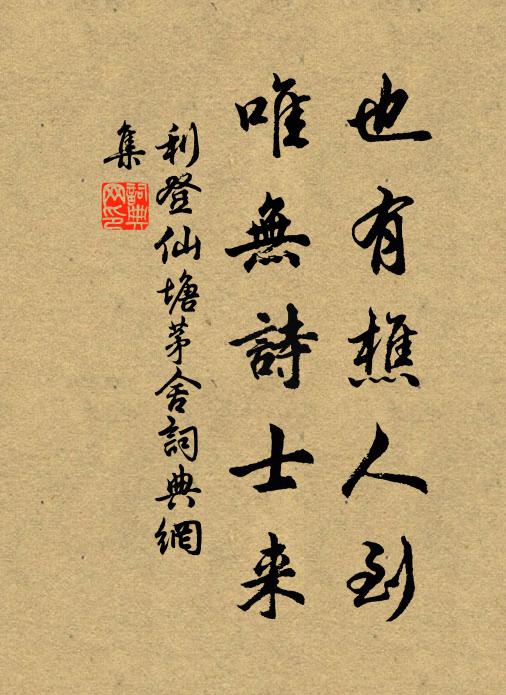 也有樵人到
唯無詩士来
利登仙塘茅舍詞典網
集
詞典
网印